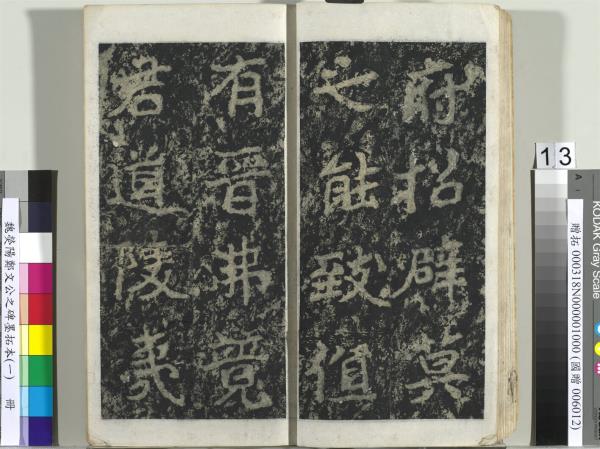 府招辟莫
之能致值
有晉弗競
君道陵夷
13
KODAK Gray Scale
A
贈拓 000318N000001000 (國贈 006012)
魏滎陽鄭文公之碑墨拓本(一) 冊